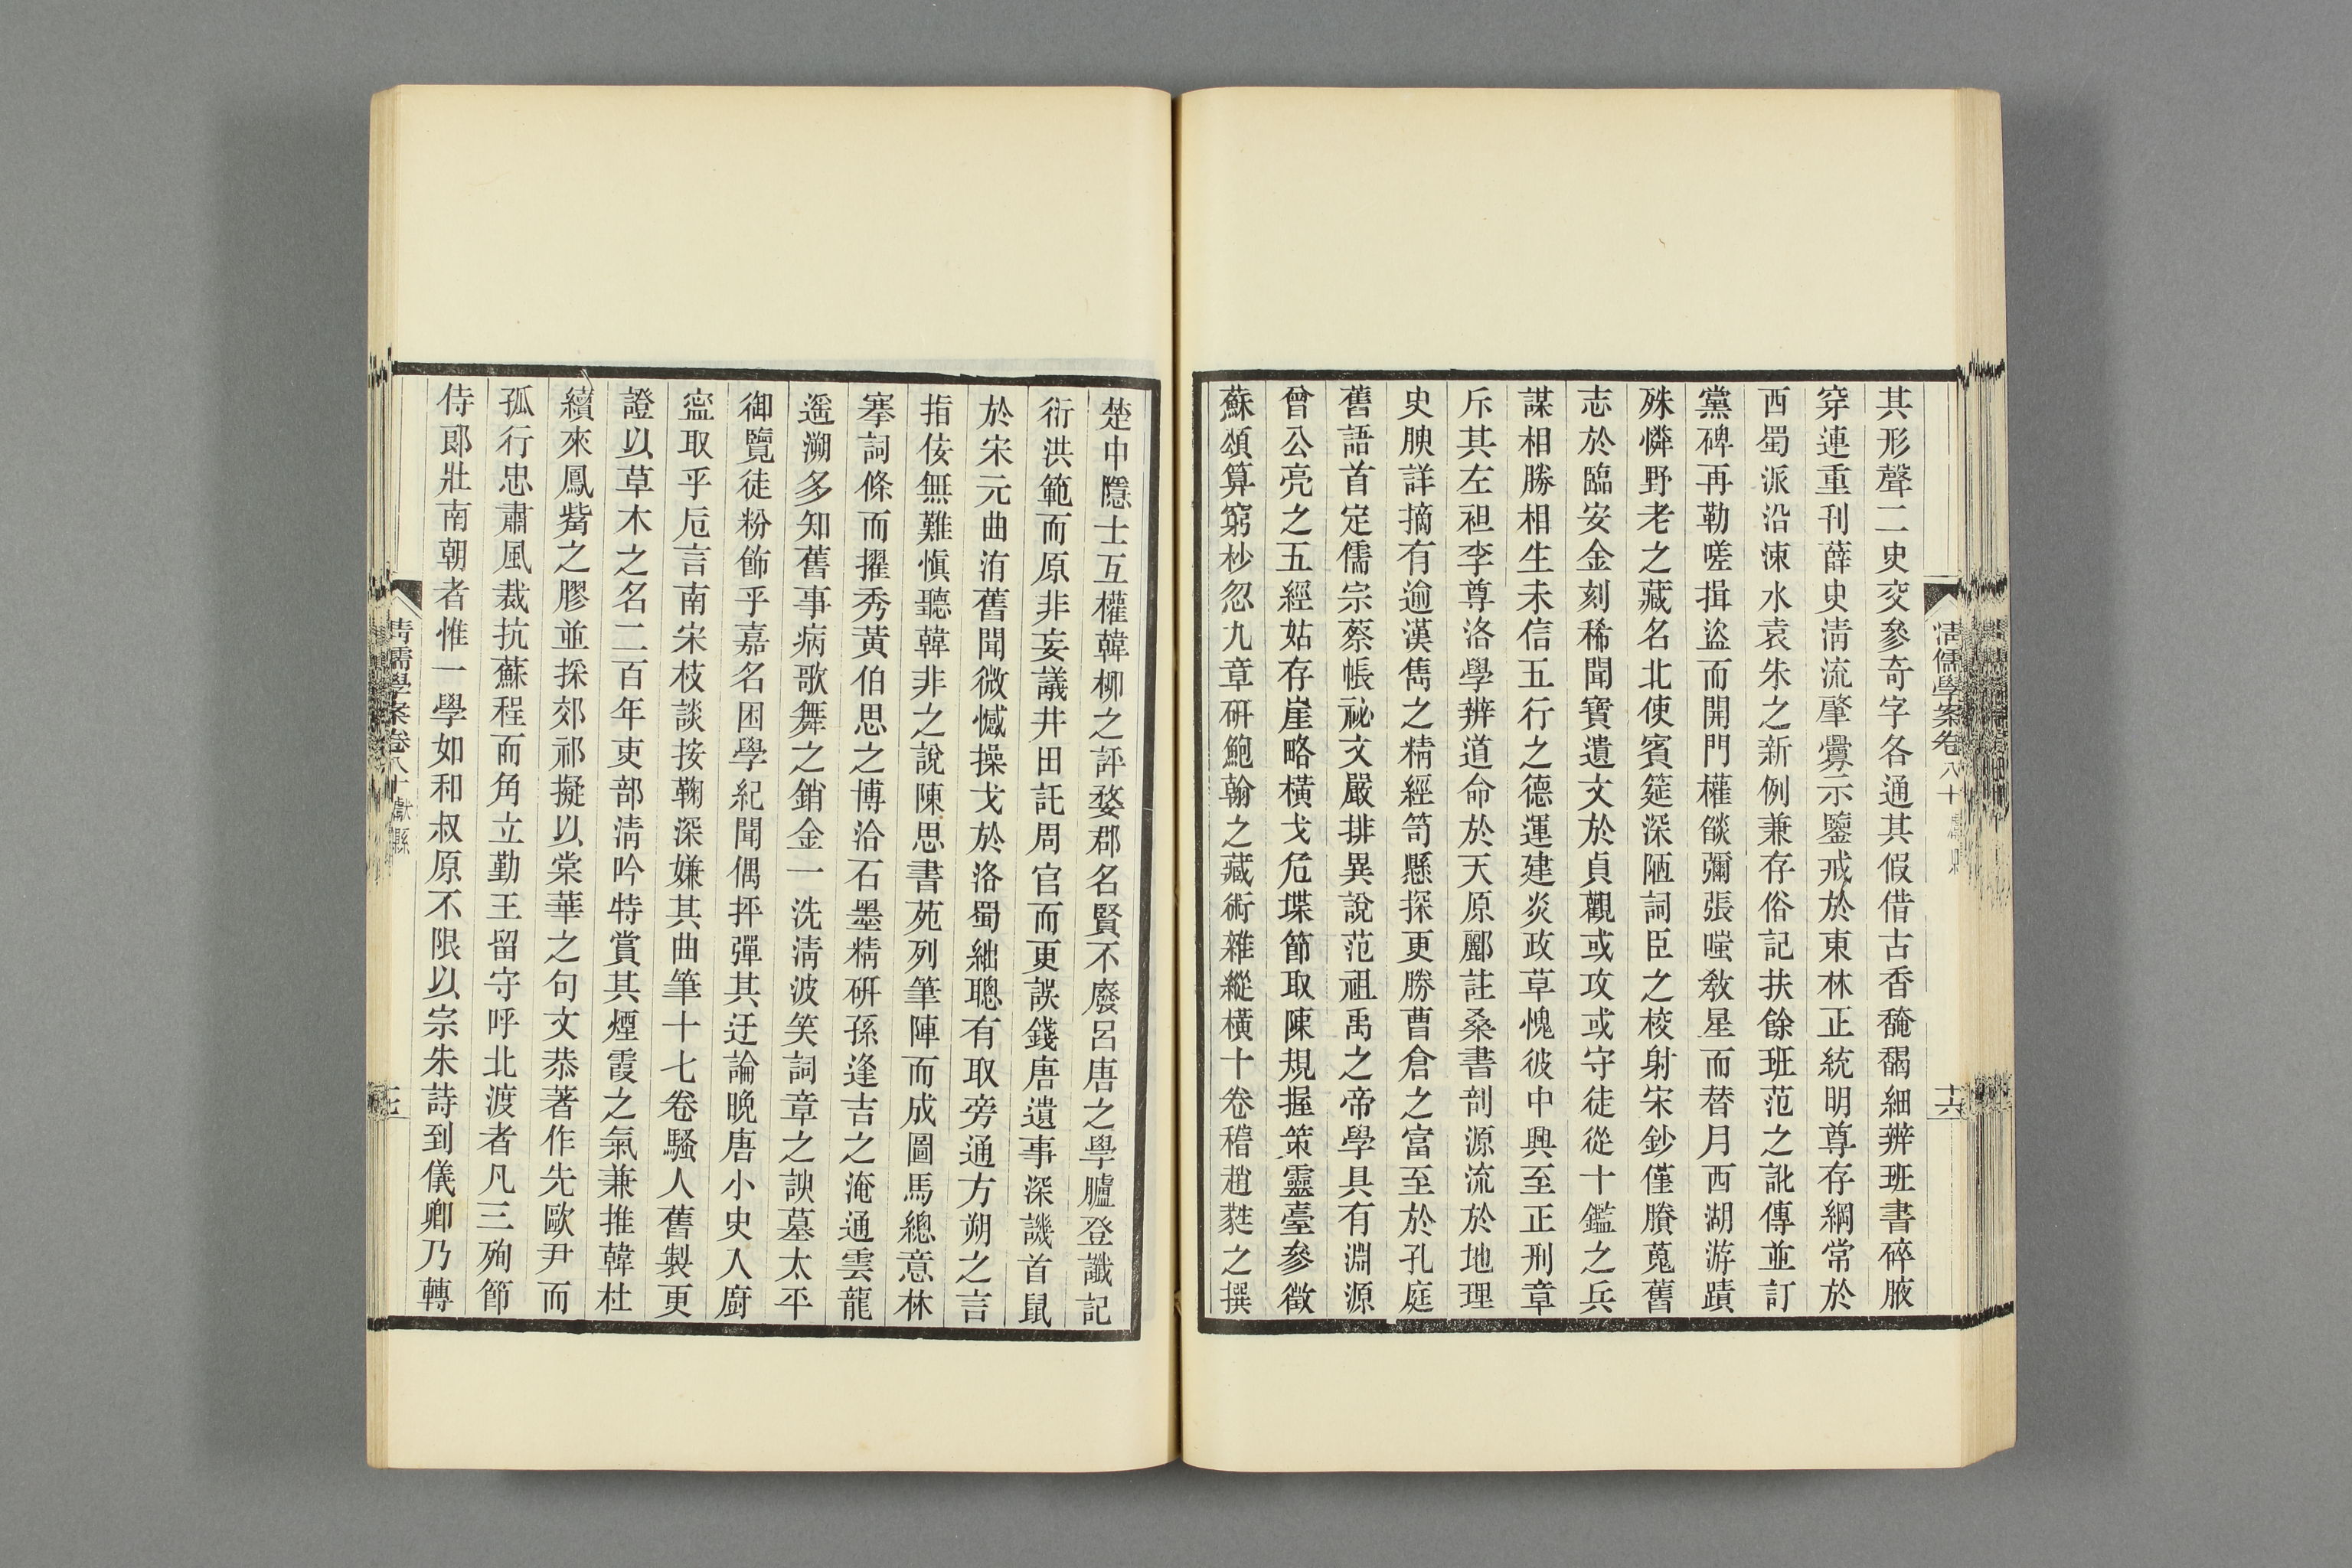 其形聲二史交參奇字各通其假借古香馣馤細辨班書碎腋
穿連重刊薛史淸流肇釁示鑒戒於東林正統明尊存綱常於
西蜀派沿涑水袁朱之新例兼存俗記扶餘班范之訛傳並訂
黨碑再勒嗟揖盜而開門權燄彌張嗤敎星而替月西湖游蹟
殊憐野老之藏名北使賓筵深陋詞臣之校射宋鈔僅賸蒐舊
志於臨安金刻稀聞寶遺文於貞觀或攻或守徒從十鑑之兵
謀相勝相生未信五行之德運建炎政草愧彼中興至正刑章
斥其左袒李尊洛學辨道命於天原酈註桑書剖源流於地理
史腴詳摘有逾漢雋之精經笥懸探更勝曹倉之富至於孔庭
舊語首定儒宗蔡帳祕文嚴排異說范祖禹之帝學具有淵源
曾公亮之五經姑存崖略橫戈危堞節取陳規握策靈臺參徵
蘇頌算窮杪忽九章硏鮑翰之藏術雜縱橫十卷稽趙蕤之撰
淸儒學案卷八十
十六
楚中隱士互權韓柳之評婺郡名賢不廢呂唐之學臚登讖記
衍洪範而原非妄議井田託周官而更誤錢唐遺事深譏首鼠
於宋元曲洧舊聞微憾操戈於洛蜀紬聰有取旁通方朔之言
指佞無難愼聽韓非之說陳思書苑列筆陣而成圖馬總意林
搴詞條而擢秀黃伯思之博洽石墨精硏孫逢吉之淹通雲龍
遥溯多知舊事病歌舞之銷金一洗淸波笑詞章之諛墓太平
御覽徒粉飾乎嘉名困學紀聞偶抨彈其迂論晚唐小史入廚
寍取乎卮言南宋枝談按鞠深嫌其曲筆十七卷騷人舊製更
證以草木之名二百年吏部淸吟特賞其煙霞之氣兼推韓杜
續來鳳觜之膠並採郊祁擬以棠華之句文恭著作先歐尹而
孤行忠肅風裁抗蘇程而角立勤王留守呼北渡者凡三殉節
侍郎壯南朝者惟一學如和叔原不限以宗朱詩到儀卿乃轉
淸儒學案卷八十獻縣
十七